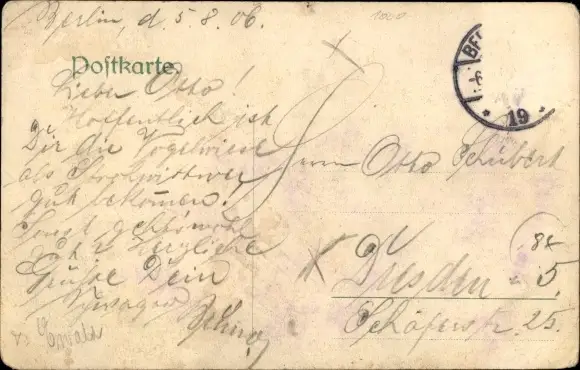 Berlin, d. 5.8.06.
1020
Postkarte.
Lieber Otto!
Hoffentlich ist
Dir die Vogelwiese
als
gut bekommen!
Sonst
herzliche
Grüße Dein
Herrn Otto Schubert
Dresden 5.
Schäferstr. 25.
BE
19
88
Ewald